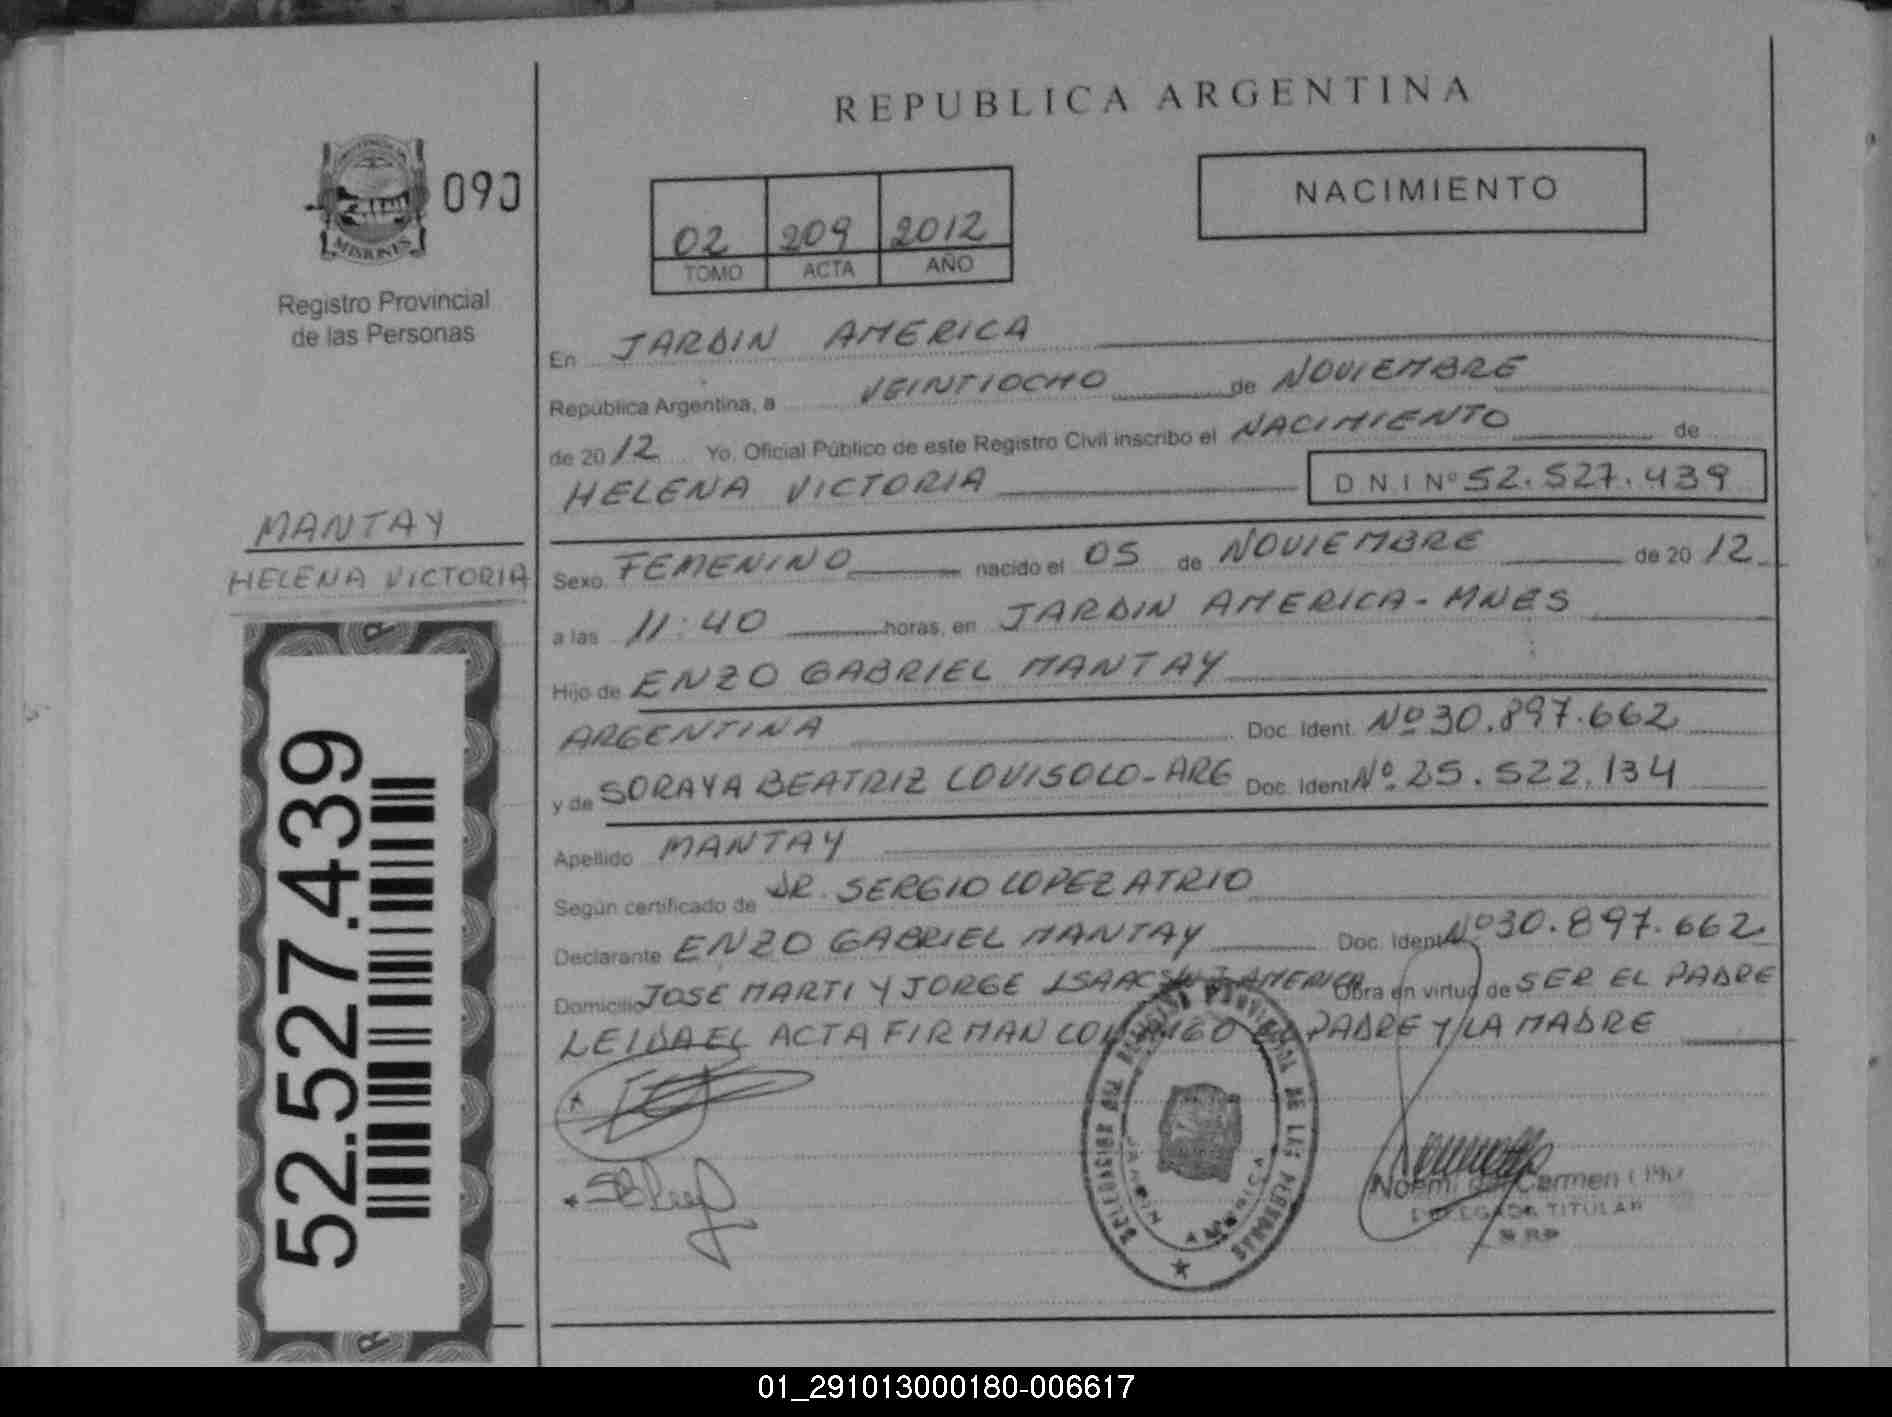 REPUBLICA ARGENTINA
NACIMIENTO
090
MISIONES
Registro Provincial
de las Personas
02 209 2012
TOMO ACTA AÑO
En JARDIN AMERICA
República Argentina, a VEINTIOCHO de NOVIEMBRE
de 2012 Yo, Oficial Público de este Registro Civil inscribo el NACIMIENTO de
HELENA VICTORIA D N I Nº 52.527.439
MANTAY
HELENA VICTORIA
Sexo FEMENINO nacido el 05 de NOVIEMBRE de 2012
a las 11:40 horas, en JARDIN AMERICA - MNES
Hijo de ENZO GABRIEL MANTAY
ARGENTINA Doc. Ident. Nº 30.897.662
y de SORAYA BEATRIZ LOVISOLO - ARG Doc. Ident. Nº 25.522.134
Apellido MANTAY
Según certificado de DR. SERGIO LOPEZ ATRIO
Declarante ENZO GABRIEL MANTAY Doc. Ident. Nº 30.897.662
Domicilio JOSE MARTI Y JORGE ISAACS J. AMERICA Obra en virtud de SER EL PADRE
LEIDA EL ACTA FIRMAN CONMIGO EL PADRE Y LA MADRE
52.527.439
REGISTRO PROVINCIAL DE LAS PERSONAS
JARDIN AMERICA
Noemi del Carmen
DELEGADA TITULAR
RP
01_291013000180-006617